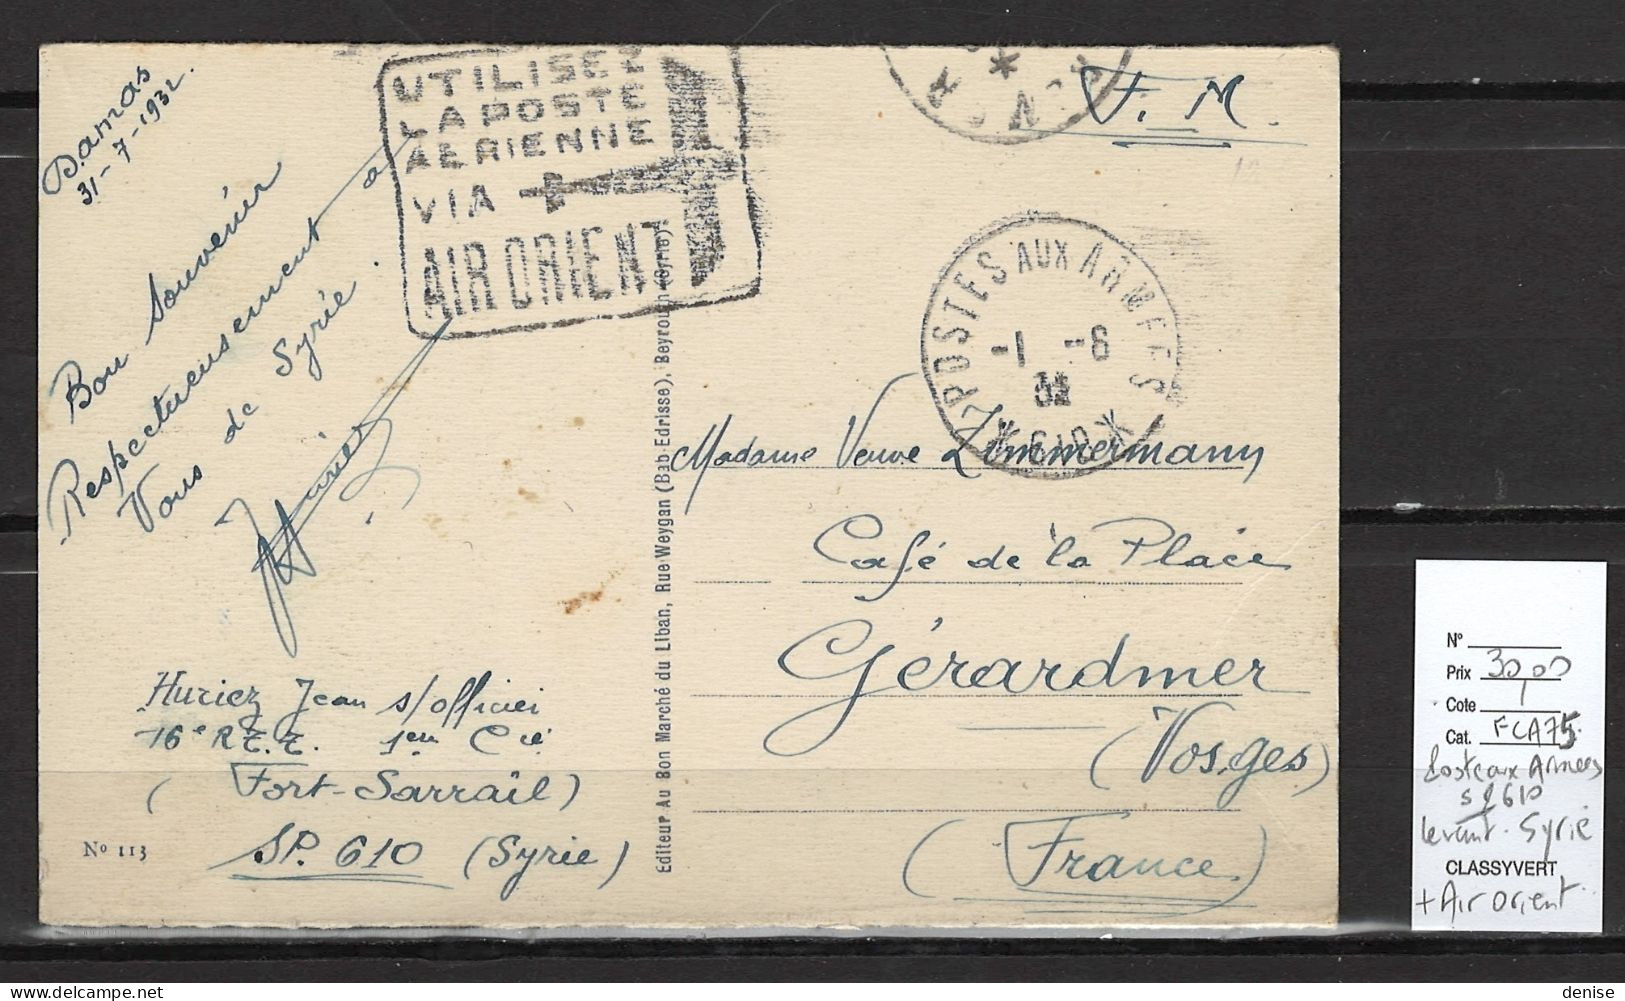 Damas
31-7-1932.
Bon Souvenir
Respectueusement à
Vous de Syrie.
UTILISER
LA POSTE
AERIENNE
VIA
AIR ORIENT
F. M.
POSTES AUX ARMEES
-1 -6
32
* 610 *
Madame Veuve Zimmermann
Café de la Place
Gérardmer
(Vosges)
(France)
Huriez Jean s/officier
16e R.T.T. 1ere Cie
(Fort-Sarrail)
SP. 610 (Syrie)
No 113
Editeur Au Bon Marché du Liban, Rue Weygan (Bab-Edrisse), Beyrouth (Syrie)
N°
Prix 30,00
Cote
Cat. FCA75
Poste aux Armées
SP 610
Levant. Syrie
CLASSYVERT
+ Air Orient
denise